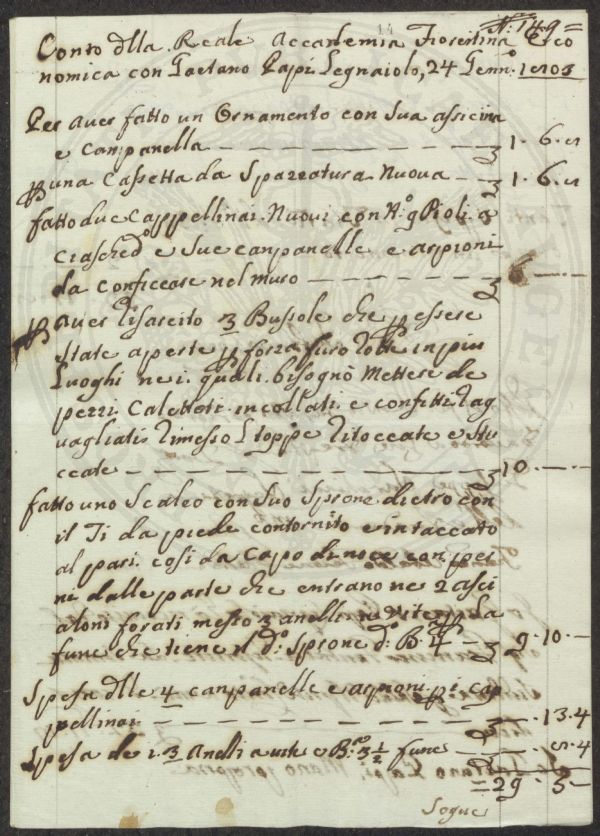 N: 149=
Conto dlla Reale Accademia Fiorentina Eco
nomica con Gaetano Papi Legnaiolo, 24 Genn:º 1803
Per aver fatto un Ornamento con Sua assicina
e Campanella — 3 1. 6. 8
una Cassetta da Spazzatura Nuova — 3 1. 6. 8
fatto due Cappellinai Nuovi con Nº: 9 Pioli a
ciasched:º e Sue canpanelle e arpioni
da conficcare nel muro — 3 6 —
aver risarcito 3 Bussole che p essere
state aperte p forza furo rotte in piu
Luoghi ne i quali bisognò Mettere de
pezzi Calettati incollati e confitti rag
uagliati rimesso Stoppe ritoccate e stu
ccate — 3 10 —
fatto uno Scaleo con Suo Sprone dietro con
il Ti da piede contornito e intaccato
al pari così da Capo di noce con per
ni dalle parte che entrano ne 2 asci
aloni forati messo 3 anelli a vite p La
fune che tiene il dº: Sprone dº: Bª 4 — 3 9. 10. —
Spesa dlle 4 canpanelle e arpioni p i cap
pellinai — 3 — . 13. 4
Spesa de i 3 Anelli a vite e Bª: 3 1/2 fune — 8. 4
= 29. 5 —
Segue